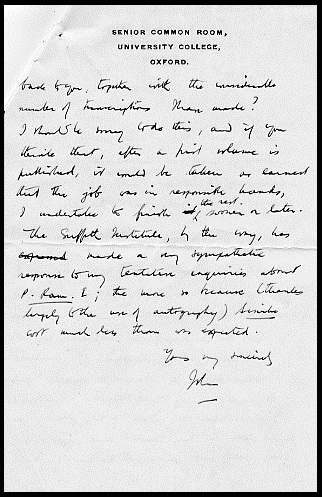 SENIOR COMMON ROOM,
UNIVERSITY COLLEGE,
OXFORD.
back to you, together with the considerable
number of transcriptions I have made?
I should be sorry to do this, and if you
think that, after a first volume is
published, it would be taken as earnest
that the job was in responsible hands,
I undertake to finish it, the rest, sooner or later.
The Griffith Institute, by the way, has
expressed made a very sympathetic
response to my tentative inquiries about
P. Ram. I; the more so because (thanks
largely to the use of autography) Sinuhe
cost much less than was expected.
Yours very sincerely
John